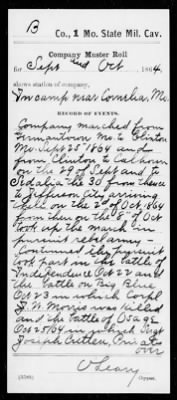 B Co., 1 Mo. State Mil. Cav.
Company Muster Roll
for Sept and Oct, 1864.
shows station of company,
In camp near Cornelia, Mo.
RECORD OF EVENTS.
Company marched from
Mo to Clinton
Mo. Sept 25" 1864 and
from Clinton to Calhoun
on the 29 of Sept and to
Sedalia the 30 from thence
to Jefferson City arriving
on the 2d of Oct 1864
from then on the 8" of Oct
took up the march in
pursuit rebel army -
continued the pursuit
took part in the battle of
Independence Oct 22 and
the battle on Big Blue
Oct 23 in which Corpl
J. W. Morris was killed
and the battle of Osage
Oct 25/64 in which Sergt
Joseph Privates
over
O'Leary
Copyist.